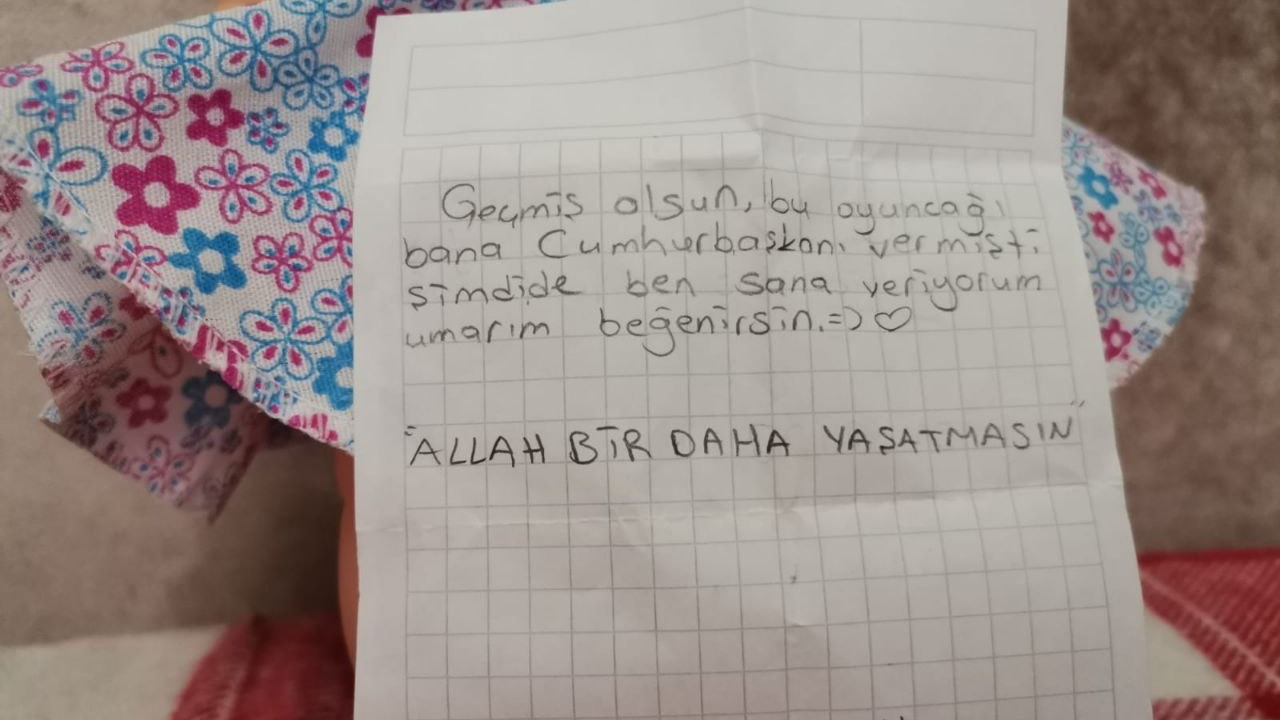 Geçmiş olsun, bu oyuncağı
bana Cumhurbaşkanı vermişti
şimdide ben sana veriyorum
umarım beğenirsin.=) ♡
"ALLAH BİR DAHA YAŞATMASIN"